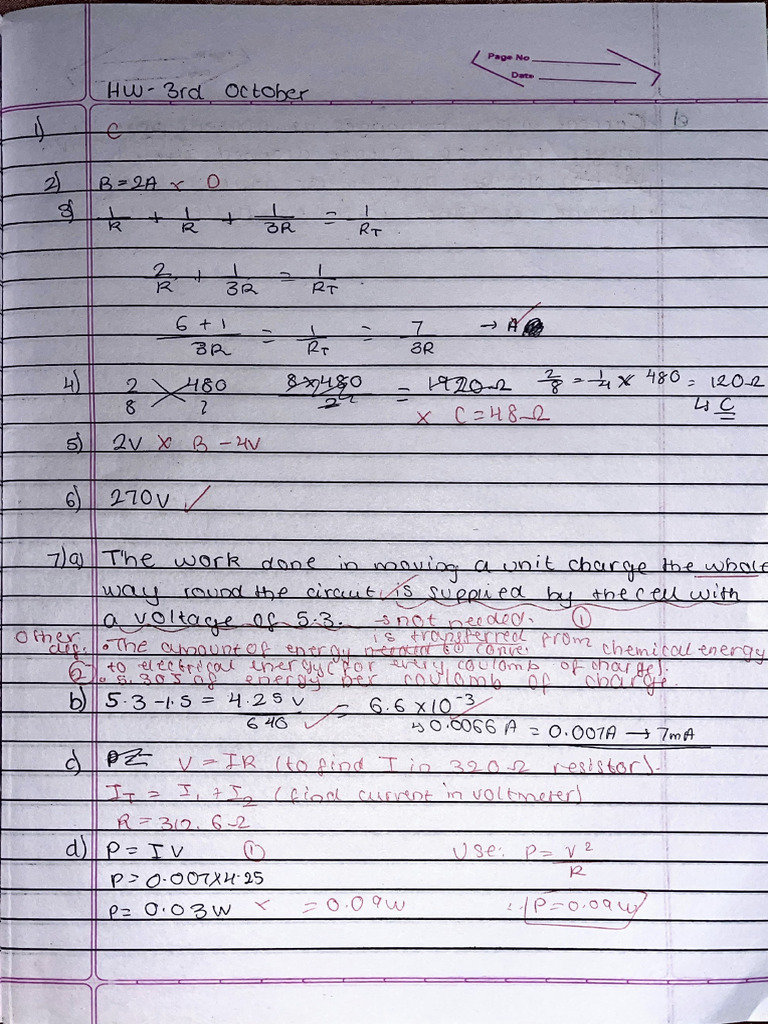 Page No
Date
HW - 3rd October
1) C
2) B = 2A × D
3) 1/R + 1/R + 1/3R = 1/RT
2/R + 1/3R = 1/RT
6 + 1/3R = 1/RT = 7/3R → A ✓
4) 2/8 480/? 8×480/2 = 1920Ω 2/8 = 1/4 × 480 = 120Ω
× C = 48Ω ↳ C
5) 2V × B - 4V
6) 270V ✓
7)a) The work done in moving a unit charge the whole
way round the circuit, is supplied by the cell with
a voltage of 5.3. → not needed. ①
Other def: • The amount of energy needed to conve. is transferred from chemical energy
② to electrical energy (for every coulomb of charge).
• 5.30J of energy per coulomb of charge.
b) 5.3 - 1.5 = 4.25 V/640 ✓ = 6.6 × 10⁻³
↳ 0.0066 A = 0.007A → 7mA
c) V = IR (to find I in 320Ω resistor).
IT = I1 + I2 (find current in voltmeter)
R = 312.6Ω
d) P = IV ① Use: P = V²/R
P = 0.007×4.25
P = 0.03W × = 0.09W ∴ P = 0.09W